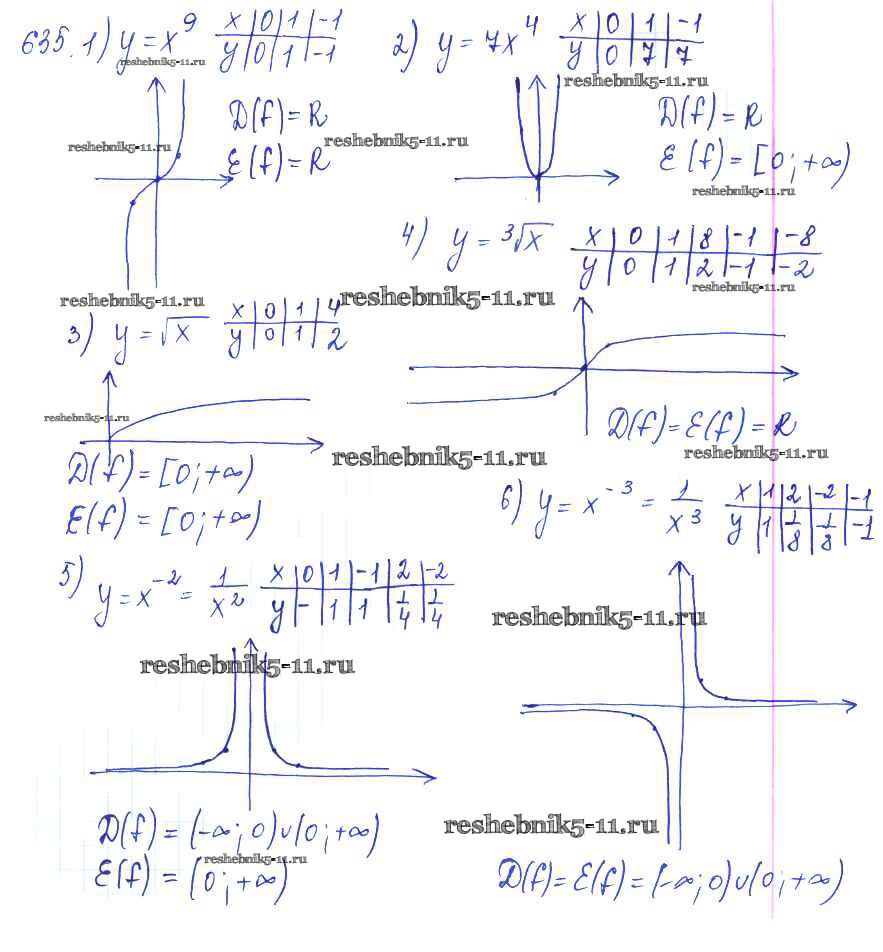 635. 1) y = x⁹ x | 0 | 1 | -1
y | 0 | 1 | -1
reshebnik5-11.ru
D(f) = R
E(f) = R
reshebnik5-11.ru
reshebnik5-11.ru
2) y = 7x⁴ x | 0 | 1 | -1
y | 0 | 7 | 7
reshebnik5-11.ru
D(f) = R
E(f) = [0; +∞)
reshebnik5-11.ru
reshebnik5-11.ru
3) y = √x x | 0 | 1 | 4
y | 0 | 1 | 2
reshebnik5-11.ru
D(f) = [0; +∞)
E(f) = [0; +∞)
4) y = ³√x x | 0 | 1 | 8 | -1 | -8
y | 0 | 1 | 2 | -1 | -2
reshebnik5-11.ru
reshebnik5-11.ru
D(f) = E(f) = R
reshebnik5-11.ru
reshebnik5-11.ru
5) y = x⁻² = 1/x² x | 0 | 1 | -1 | 2 | -2
y | - | 1 | 1 | 1/4 | 1/4
reshebnik5-11.ru
D(f) = (-∞; 0)∪(0; +∞)
E(f) = (0; +∞)
reshebnik5-11.ru
6) y = x⁻³ = 1/x³ x | 1 | 2 | -2 | -1
y | 1 | 1/8 | -1/8 | -1
reshebnik5-11.ru
reshebnik5-11.ru
D(f) = E(f) = (-∞; 0)∪(0; +∞)